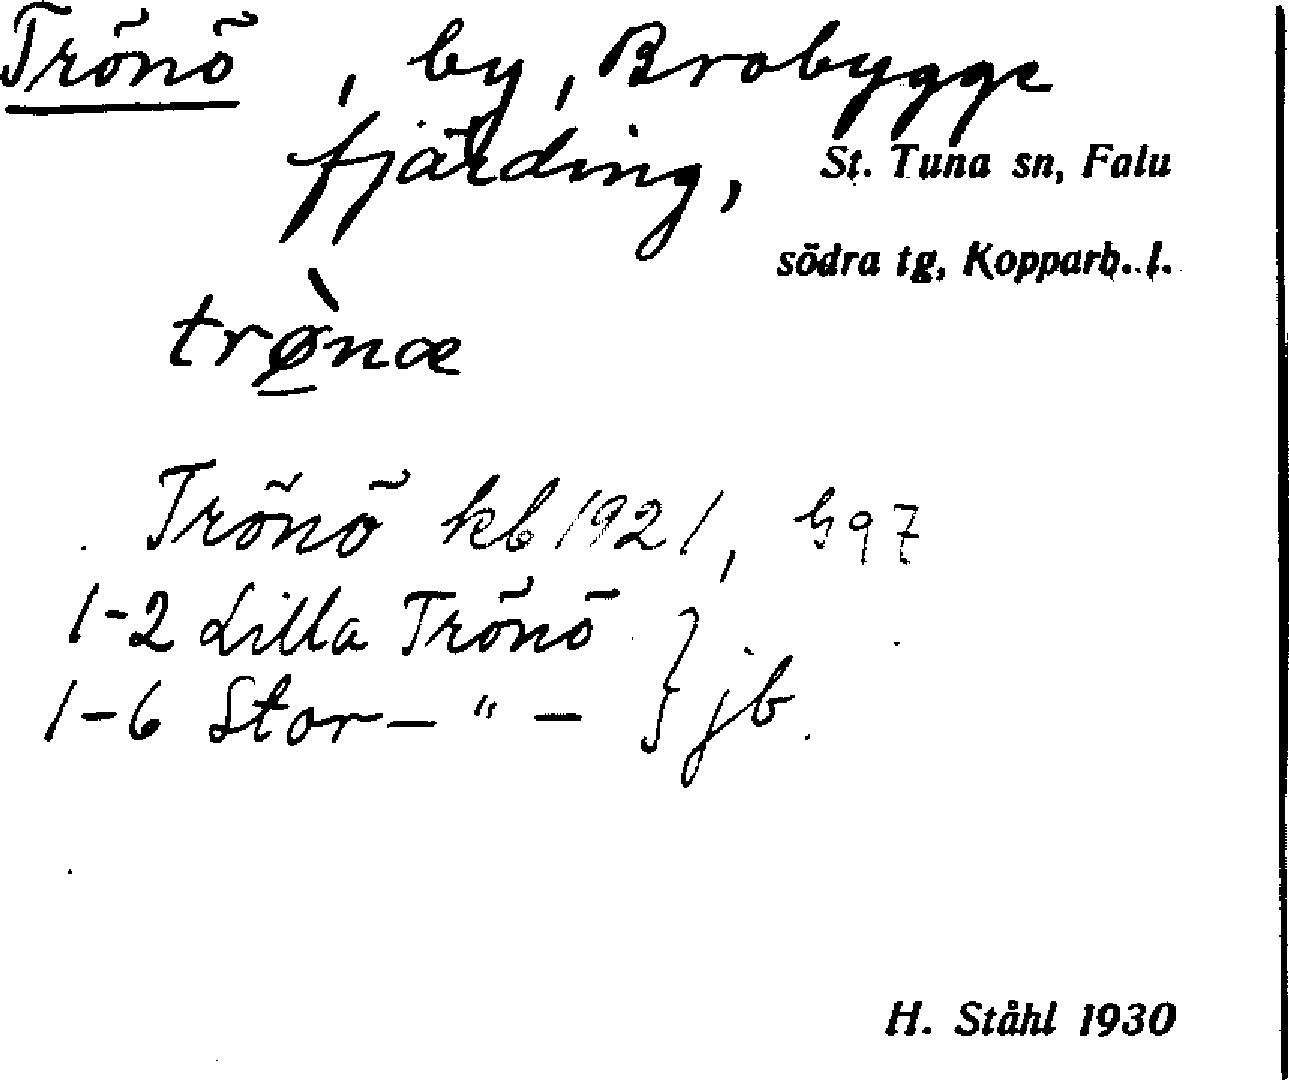 Trönö, by, Brobygge
fjärding, St. Tuna sn, Falu
södra tg, Kopparb. l.
trø̀næ
Trönö kb 1921, h97
1-2 Lilla Trönö } jb.
1-6 Stor- " -
H. Ståhl 1930